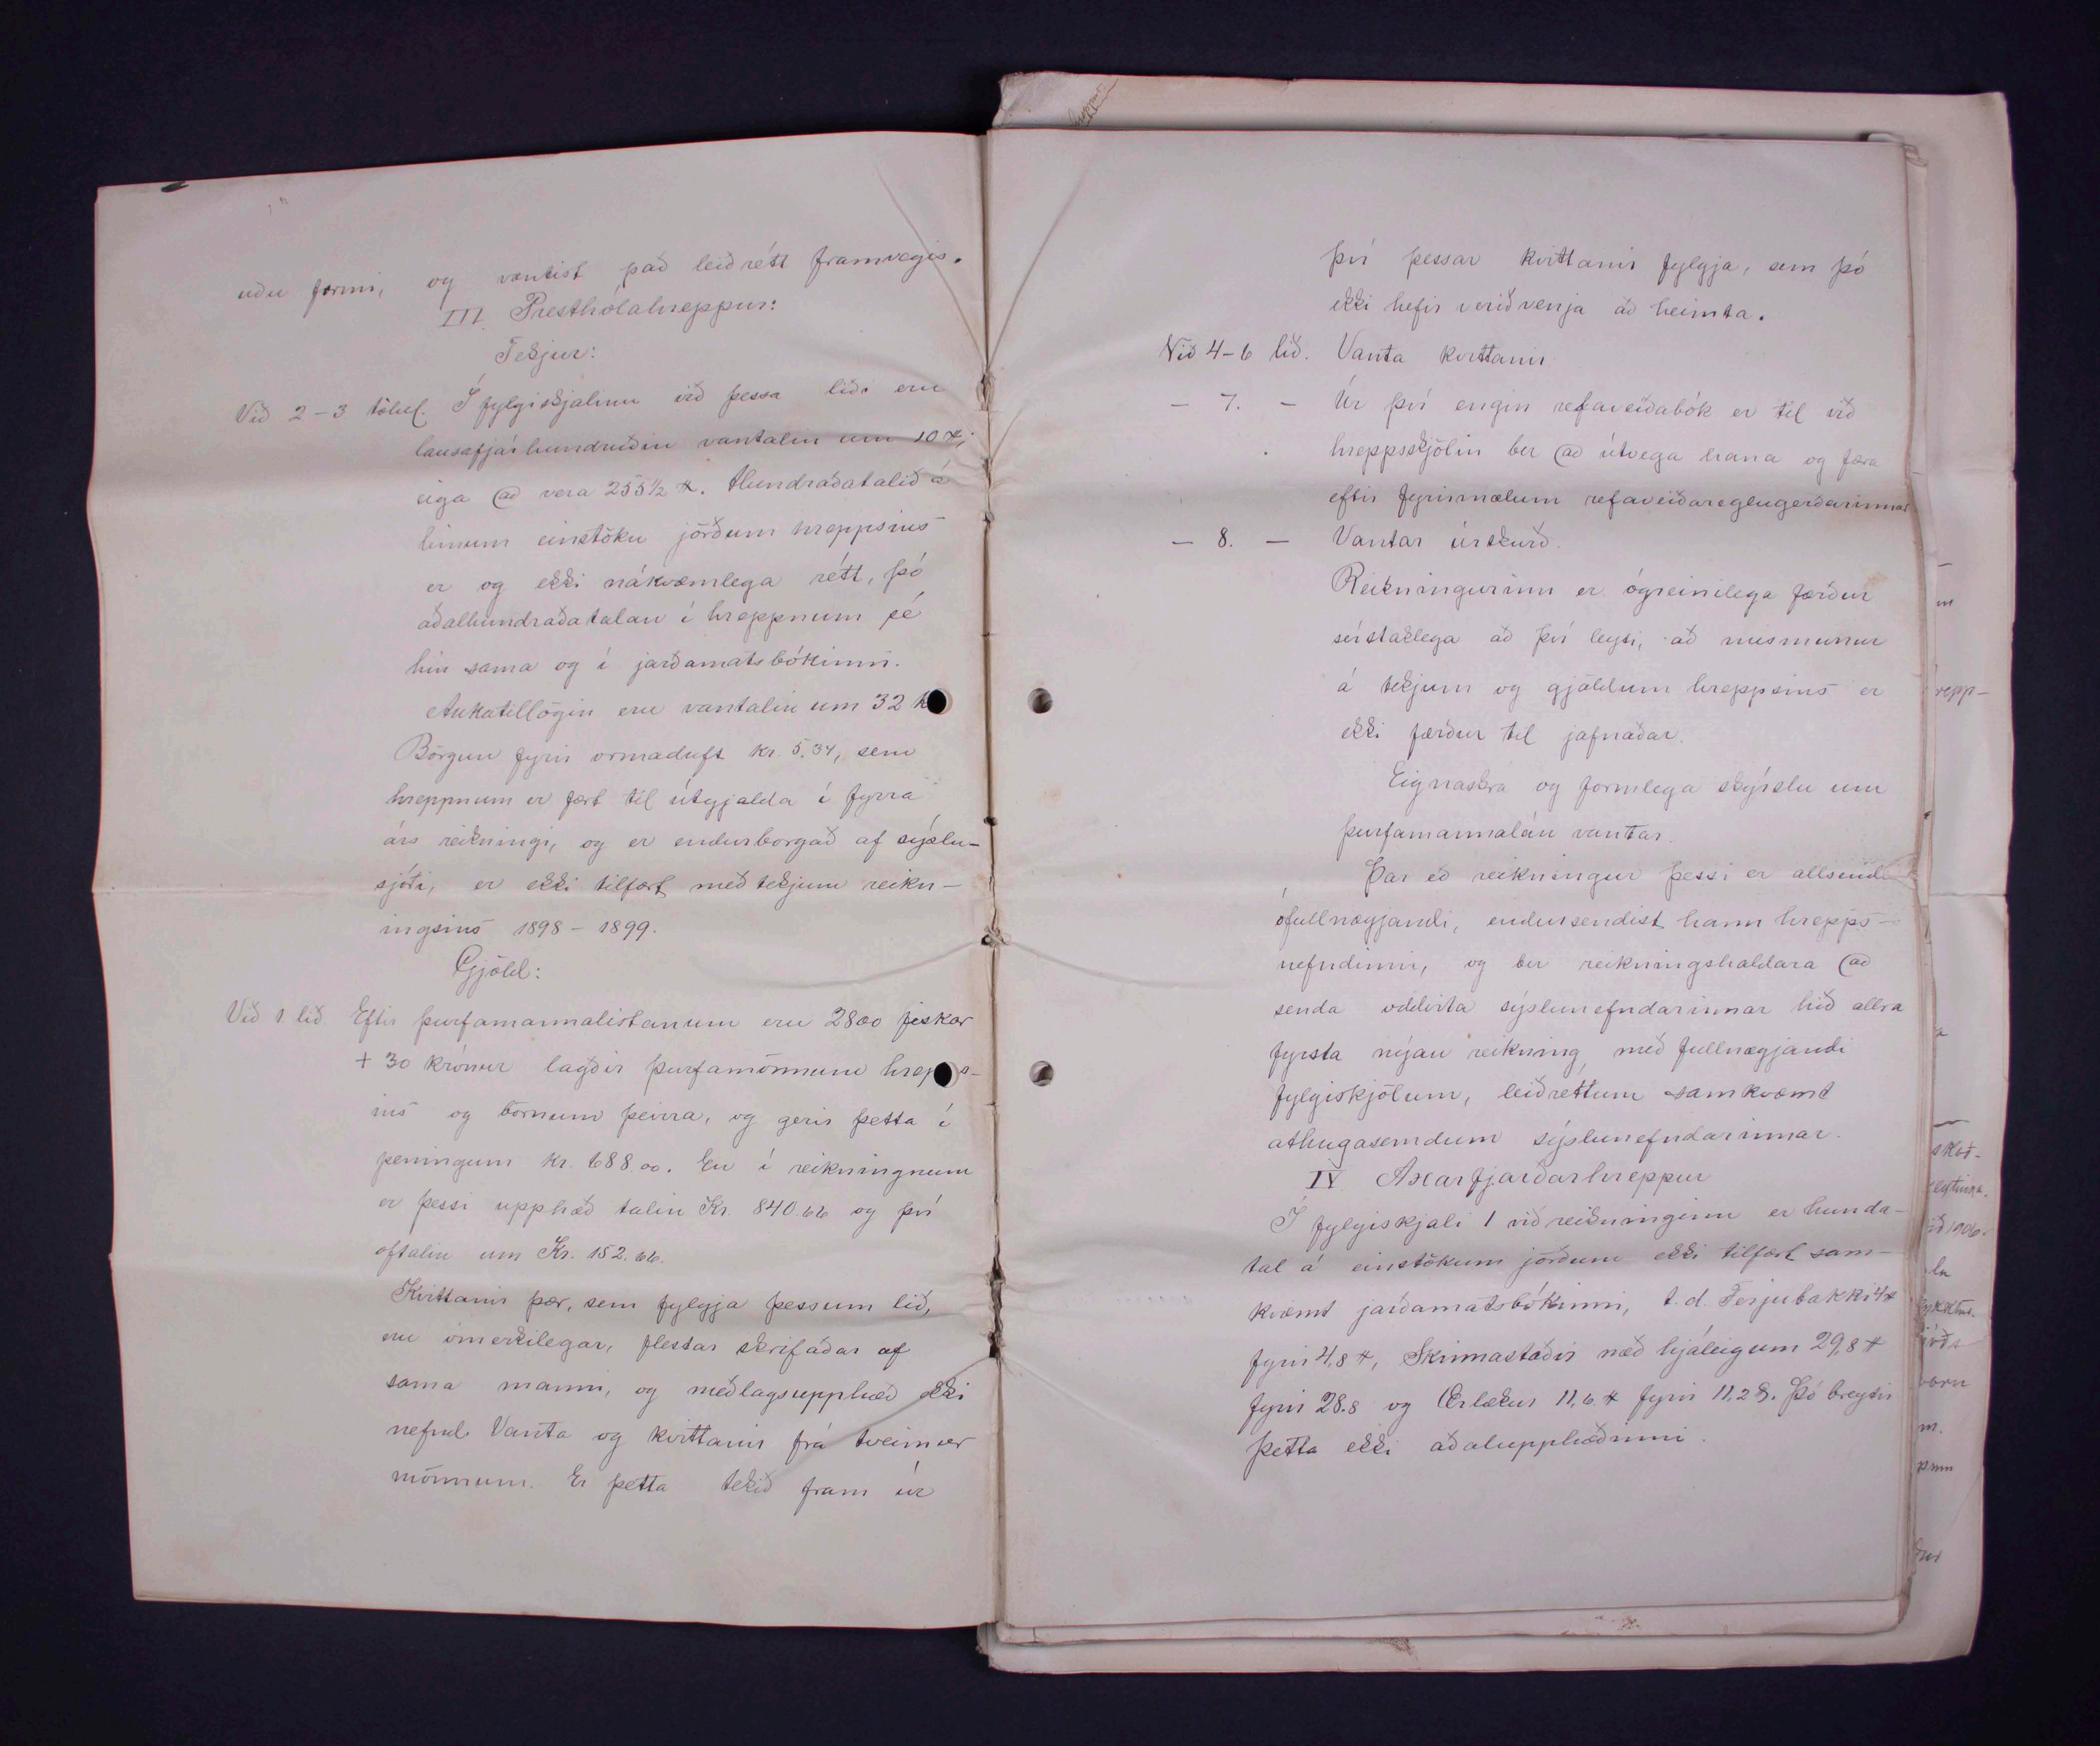 uðu formi, og væntist það leiðrétt framvegis.
III. Presthólahreppur:
Tekjur:
Við 2-3 tölul. Í fylgiskjalinu við þessa liði eru
lausafjárhundruðin vantalin um 10 #;
eiga að vera 255 1/2 #. Hundraðatalið á
hinum einstöku jörðum hreppsins
er og ekki nákvæmlega rétt, þó
aðalhundraðatalan í hreppnum sé
hin sama og í jarðamatsbókinni.
Aukatillögin eru vantalin um 32
Börgun fyrir ormaduft kr. 5.34, sem
hreppnum er fært til útgjalda í fyrra
árs reikningi, og er endurborgað af sýslu-
sjóði, er ekki tilfært með tekjum reikn-
ingsins 1898-1899.
Gjöld:
Við 1 lið Eftir þurfamannalistanum eru 2800 fiskar
+ 30 krónur lagðir þurfamönnum hrepps-
ins og börnum þeirra, og gerir þetta í
peningum kr. 688.00. En í reikningnum
er þessi upphæð talin Kr. 840.66 og því
oftalin um Kr. 152.66.
Kvittanir þær, sem fylgja þessum lið,
eru ómerkilegar, flestar skrifaðar af
sama manni, og meðlagsupphæð ekki
nefnd. Vanta og kvittanir frá tveimur
mönnum. Er þetta tekið fram úr
því þessar kvittanir fylgja, sem þó
ekki hefir verið venja að heimta.
Við 4-6 lið. Vanta kvittanir
- 7. - Úr því engin refaveiðabók er til við
hreppsskjölin ber að útvega hana og færa
eftir fyrirmælum refaveiðareglugerðarinnar
- 8. - Vantar úrskurð.
Reikningurinn er ógreinilega færður
sérstaklega að því leyti, að mismunur
á tekjum og gjöldum hreppsins er
ekki færður til jafnaðar.
Eignaskrá og formlega skýrslu um
þurfamannalán vantar.
Þar eð reikningur þessi er allsendis
ófullnægjandi, endursendist hann hrepps-
nefndinni, og ber reikningshaldara að
senda oddvita sýslunefndarinnar hið allra
fyrsta nýjan reikning, með fullnægjandi
fylgiskjölum, leiðréttum samkvæmt
athugasemdum sýslunefndarinnar.
IV Axarfjarðarhreppur
Í fylgiskjali 1 við reikninginn er hunda-
tal á einstökum jörðum ekki tilfært sam-
kvæmt jarðamatsbókinni, t.d. Ferjubakki 4 #
fyrir 4,8 #, Skinnastaðir með hjáleigum 29,8 #
fyrir 28.8 og Ærlækur 11,6 # fyrir 11.28. Þó breytir
þetta ekki aðalupphæðinni.